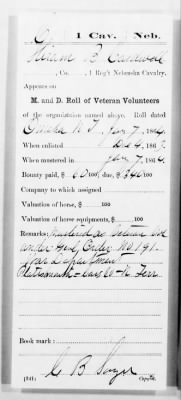 C 1 Cav. Neb.
Hiram B.
, Co. , 1 Reg't Nebraska Cavalry.
Appears on
M. and D. Roll of Veteran Volunteers
of the organization named above. Roll dated
Omaha N.T., Jan 7, 1864.
When enlisted Dec 4, 1863.
When mustered in Jan 7, 1864.
Bounty paid, $ 60 /100; due, $ 340 /100
Company to which assigned
Valuation of horse, $ /100
Valuation of horse equipments, $ /100
Remarks: Mustered as Veteran Vol
under Genl. Order No 191
War Department
Plattsmouth Cass Co N. Terr
Book mark:
C B
(341) Copyist.